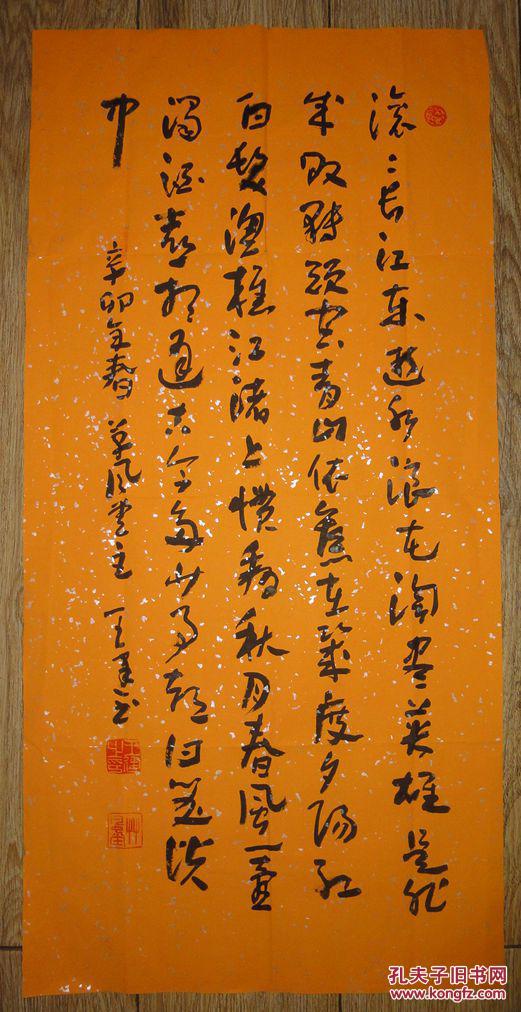 滚〻长江东逝水浪花淘尽英雄是非
成败转头空青山依旧在几度夕阳红
白发渔樵江渚上惯看秋月春风一壶
浊酒喜相逢古今多少事都付笑谈
中
辛卯年春 草风堂主
孔夫子旧书网
www.kongfz.com